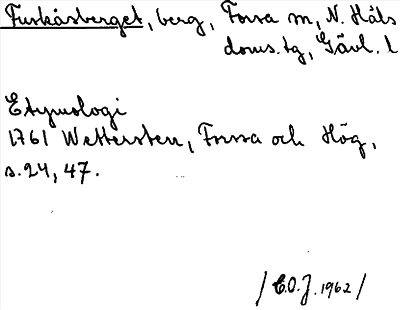 Furkåsberget, berg, Forsa sn, N. Häls
doms.tg, Gävl. l
Etymologi
1761 Wettersten, Forssa och Hög,
s. 24, 47.
/C.O.J. 1962/